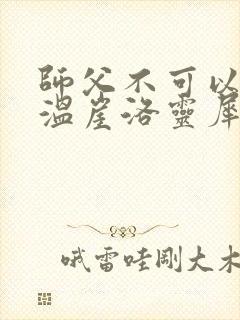 師父不可以
溫崖洛靈犀
哦雷哇剛大木